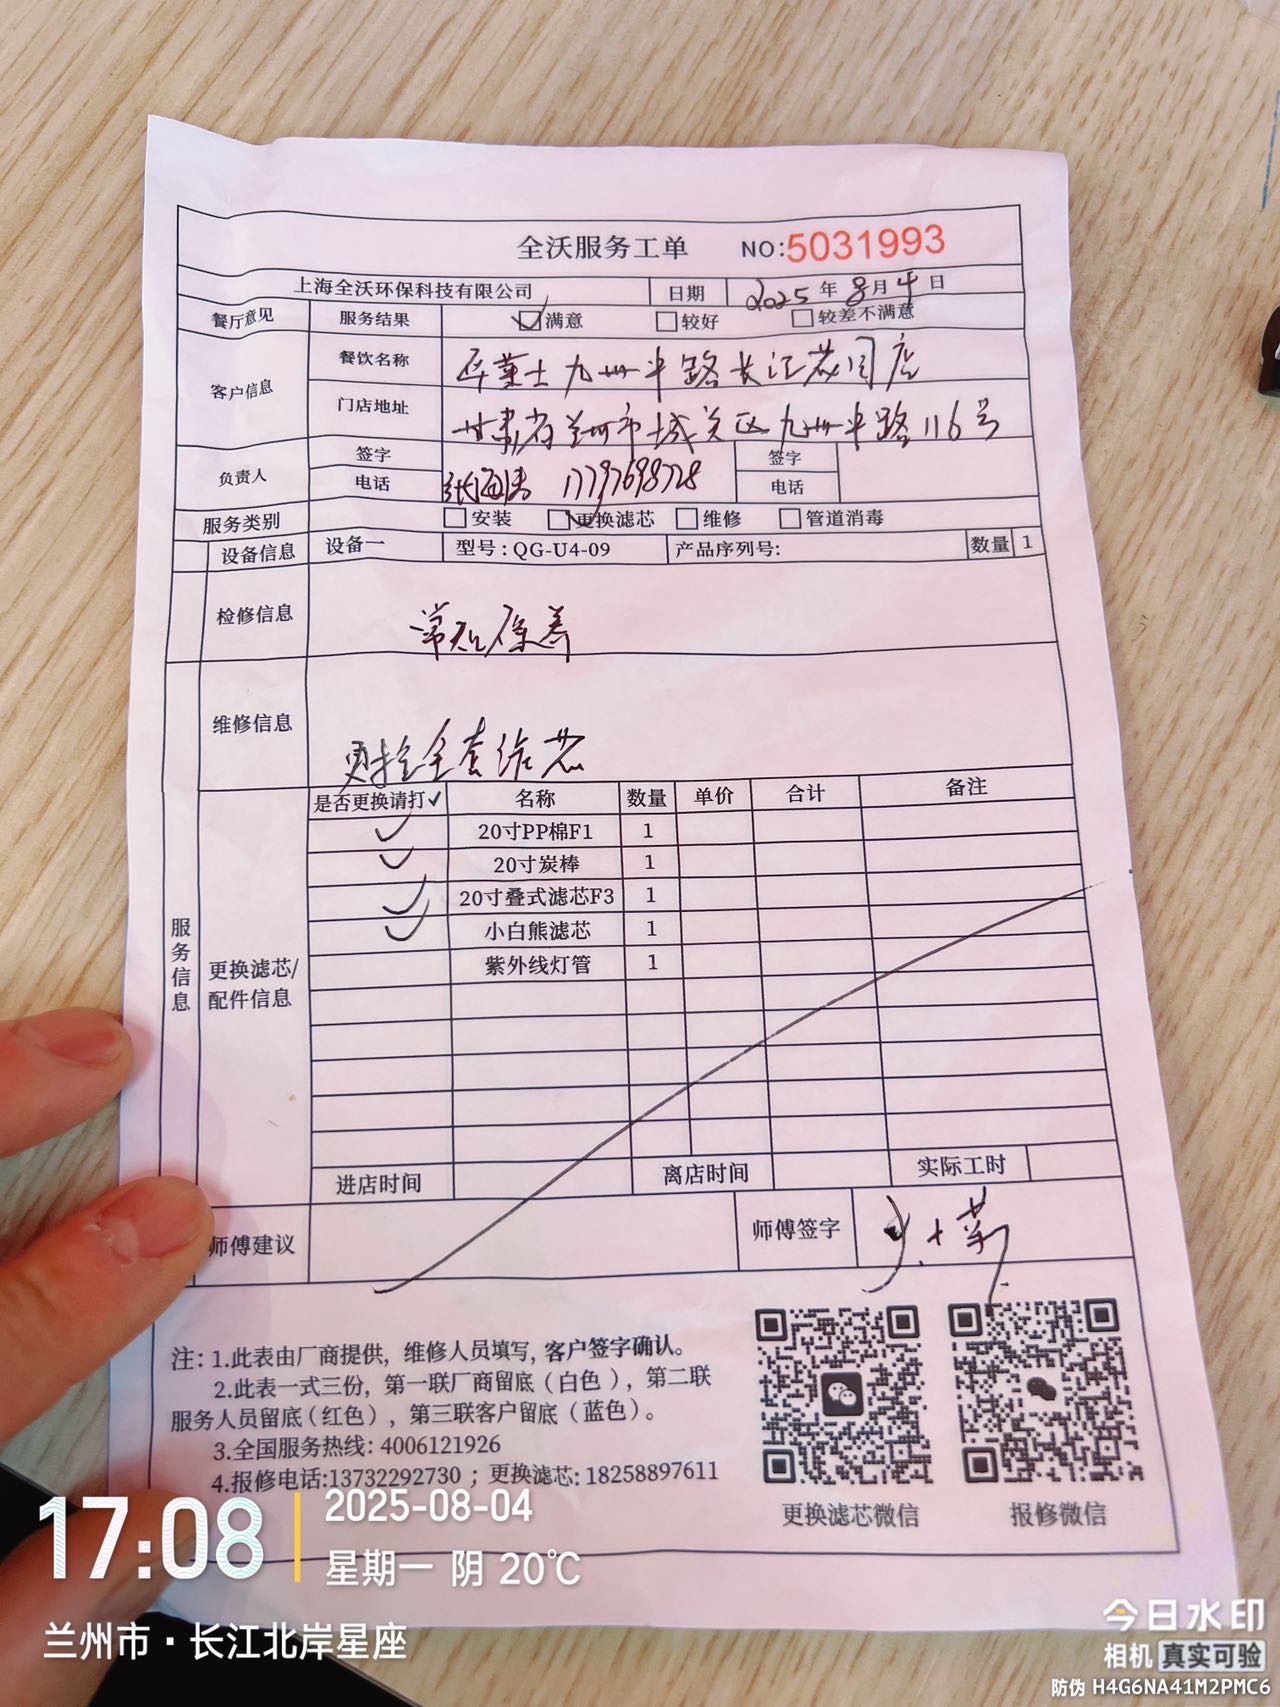 全沃服务工单 NO:5031993
上海全沃环保科技有限公司 日期 2025年8月4日
餐厅意见 服务结果 满意 较好 较差不满意
客户信息 餐饮名称 华莱士九州中路长江花园店
门店地址 甘肃省兰州市城关区九州中路116号
负责人 签字 电话 17797698728 签字 电话
服务类别 安装 更换滤芯 维修 管道消毒
设备信息 设备一 型号:QG-U4-09 产品序列号: 数量 1
检修信息 常规保养
维修信息 更换全套滤芯
服务信息
更换滤芯/配件信息
是否更换请打✓ 名称 数量 单价 合计 备注
✓ 20寸PP棉F1 1
✓ 20寸炭棒 1
✓ 20寸叠式滤芯F3 1
✓ 小白熊滤芯 1
紫外线灯管 1
进店时间 离店时间 实际工时
师傅建议 师傅签字
注:1.此表由厂商提供,维修人员填写,客户签字确认。
2.此表一式三份,第一联厂商留底(白色),第二联
服务人员留底(红色),第三联客户留底(蓝色)。
3.全国服务热线:4006121926
4.报修电话:13732292730;更换滤芯:18258897611
更换滤芯微信 报修微信
17:08 2025-08-04
星期一 阴 20℃
兰州市·长江北岸星座
今日水印
相机 真实可验
防伪 H4G6NA41M2PMC6